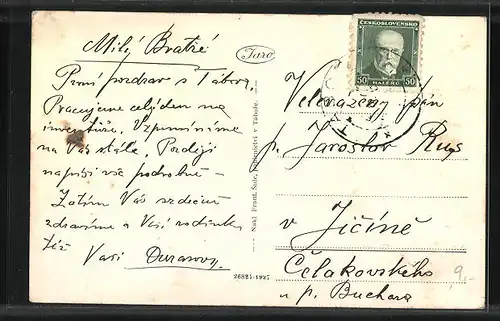 Milý Bratře
První pozdrav z Tábora,
Pracujeme celý den na
inventůře. Vzpomínáme
na Vás stále. Později
napíši vše podrobně –
Zatím Vás srdečně
zdravíme a Vaši rodinku
též
Vaši
Jaro
Nakl. Frant. Šulc, papírnictví v Táboře.
26821-1927
ČESKOSLOVENSKO
50 50
HALÉŘŮ
Velevážený pán
p. Jaroslav
v Jičíně
Čelakovského
u p. Buchara
9.-